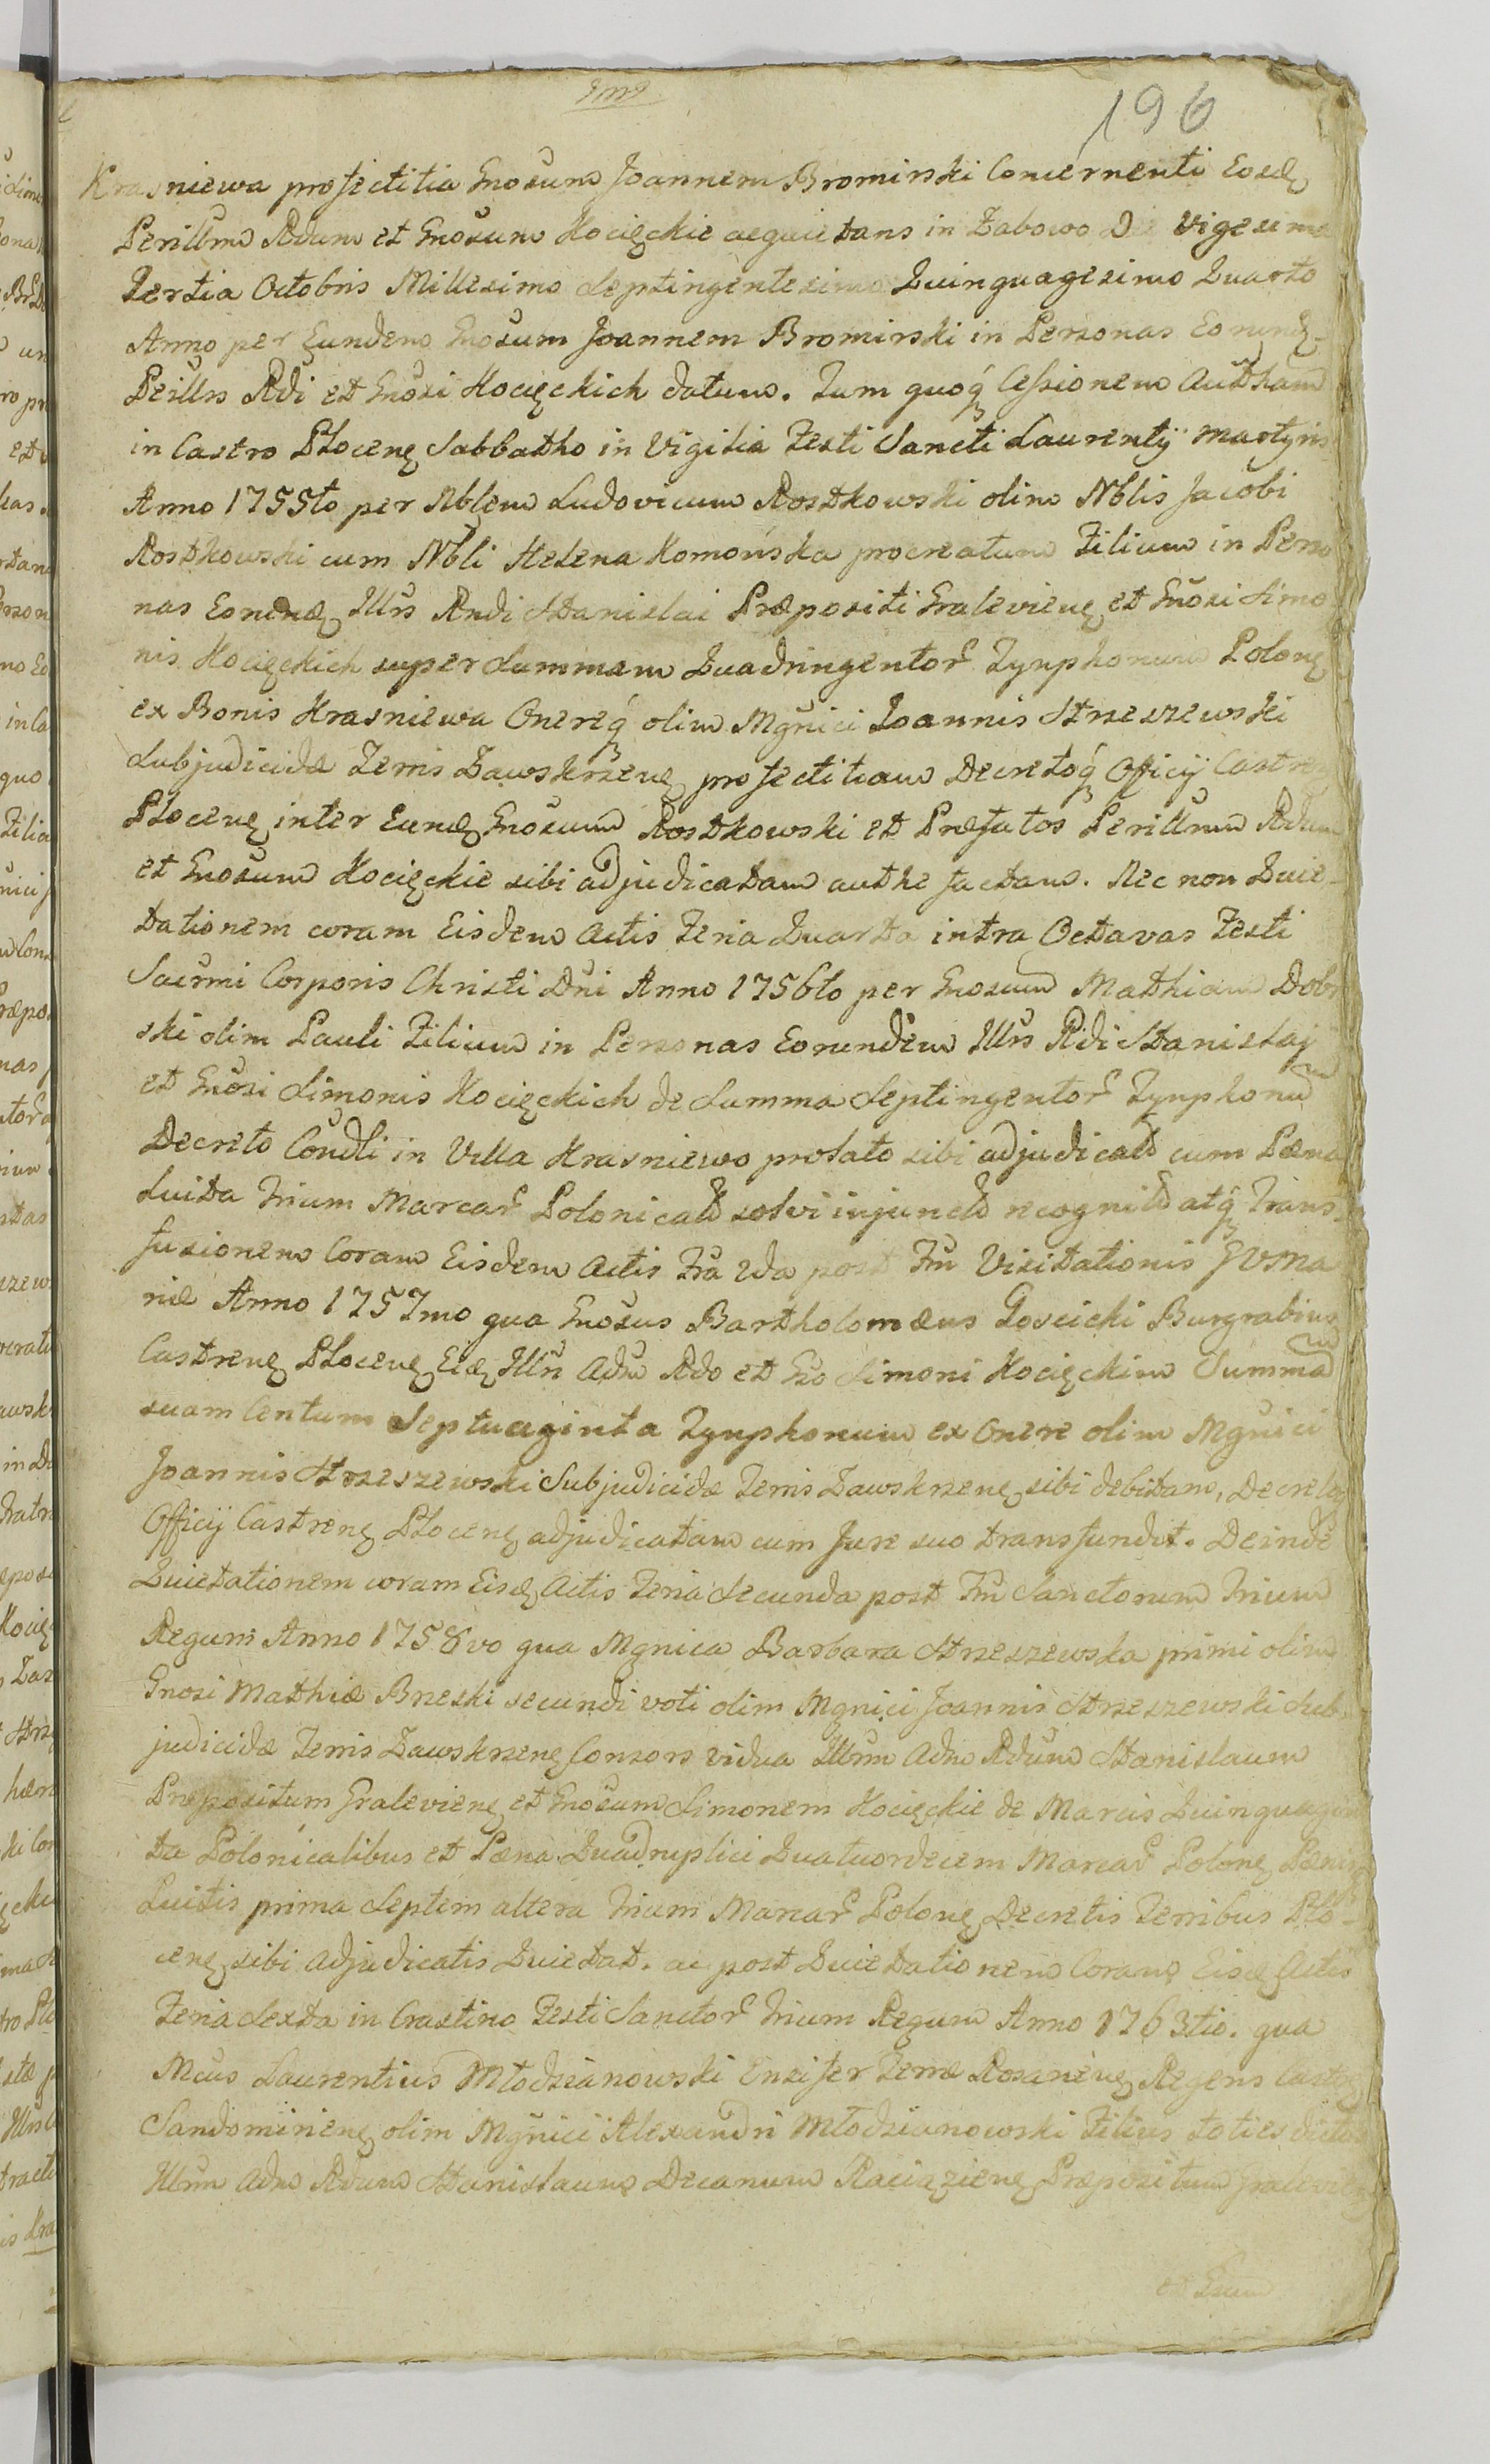 196
Krasniewa profectitia Gnosum Joannem Bromirski Concernenti Eosdę
Perillrm Rdum et Gnosum Kocięckie aequietans in Zabowo Die Vigesima
Tertia Octobris Millesimo Septingentesimo Quinquagesimo Quarto
Anno per Eundem Gnosum Joannem Bromirski in Personas Eorundę
Perillrs Rdi et Gnosi Kocięckich datum. Tum quoq́ Cessionem Autham
in Castro Płocenę Sabbatho in Vigilia Festi Sancti Laurentÿ Martyris
Anno 1755to per Nblem Ludovicum Rostkowski olim Nblis Jacobi
Rostkowski cum Nbli Helena Komońska procreatum Filium in Perso
nas Eorundę Illrs Rndi Stanislai Præpositi Gralevienę et Gnosi Simo
nis Kocięckich super Summam Quadringentor Tynphonum Polonę
ex Bonis Krasniewa Onereq́ olim Mgnici Joannis Strzeszewski
Subjudicidæ Terris Zawskrzenę profectitiam Decretoq́ Officÿ Castren
Płocenę inter Eundę Gnosum Rostkowski et Præfatos Perillrm Rdum
et Gnosum Kocięckie sibi adjudicatam authe factam. Nec non Quie-
tationem coram Eisdem Actis Feria Quarta intra Octavas Festi
Sacrmi Corporis Christi Dni Anno 1756to per Gnosum Mathiam Dobr
ski olim Pauli Filium in Personas Eorundem Illrs Rdi Stanislai
et Gnosi Simonis Kocięckich de Summa Septingentor Tynphonum
Decreto Condli in Villa Krasniewo prolato sibi adjudicat cum Pæna
Luita trium Marcar Polonicalt solvi injunct recognit atq́ Trans-
fusionem Coram Eisdem Actis Fra 2da post Fm Visitationis GVMa
riæ Anno 1757mo qua Gnosus Bartholomæus Goscicki Burgrabius
Castrenę Płocenę Eisdę Illri Adm Rdo et Gso Simoni Kocięckim Summam
suam Centum Septuaginta Tynphonum ex Onere olim Mgnici
Joannis Strzeszewski Subjudicidæ Terris Zawskrzenę sibi debitam, Decretoq́
Officÿ Castrenę Płocenę adjudicatam cum Jure suo transfundit. Deinde
Quietationem coram Eisdę Actis Feria Secunda post Fm Sanctorum Trium
Regum Anno 1758vo qua Mgnica Barbara Strzeszewska primi olim
Gnosi Mathiæ Brzeski secundi voti olim Mgnici Joannis Strzeszewski Sub-
judicidæ Terris Zawskrzenę Consors vidua Illrm Adm Rdum Stanislaum
Præpositum Gralevienę et Gnosum Simonem Kocięckie de Marcis Quinquagin
ta Polonicalibus et Pæna Quadruplici Quatuordecem Marcar Polonę Pænis
Luitis prima Septem altera trium Marcar Polonę Decretis Terribus Pło-
cenę sibi adjudicatis Quietat. ac post Quietationem Coram Eisdę Actis
Feria Sexta in Crastino Festi Sanctor Trium Regum Anno 1763tio. qua
Mcus Laurentius Młodzianowski Ensifer Terræ Rosanenę Regens Castrę
Sandomirienę olim Mgnici Alexandri Młodzianowski Filius toties dictos
Illrm Adm Rdum Stanislaum Decanum Raciązienę Præpositum Gralevienę
et Gsum